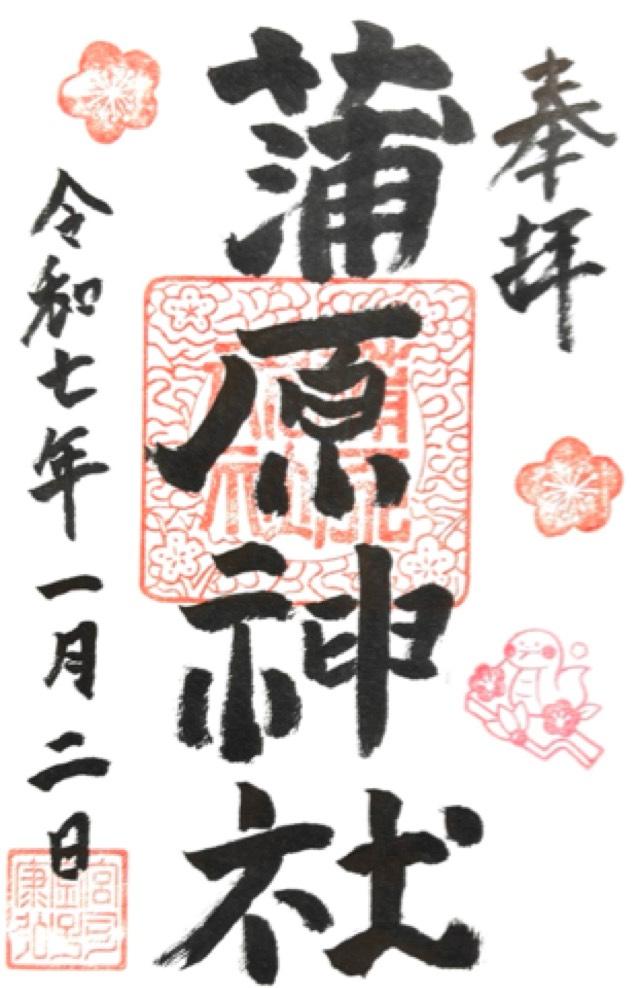 奉拝
蒲原神社
令和七年一月二日